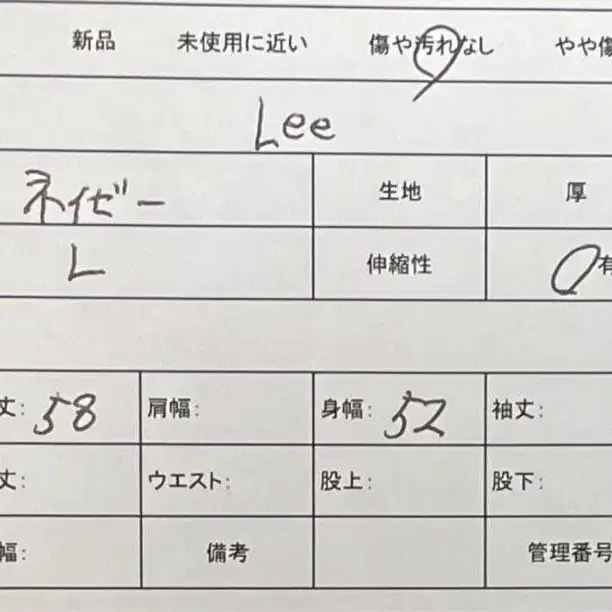 新品 未使用に近い 傷や汚れなし やや傷
Lee
ネイビー 生地 厚
L 伸縮性 有
丈: 58 肩幅: 身幅: 52 袖丈:
丈: ウエスト: 股上: 股下:
幅: 備考 管理番号